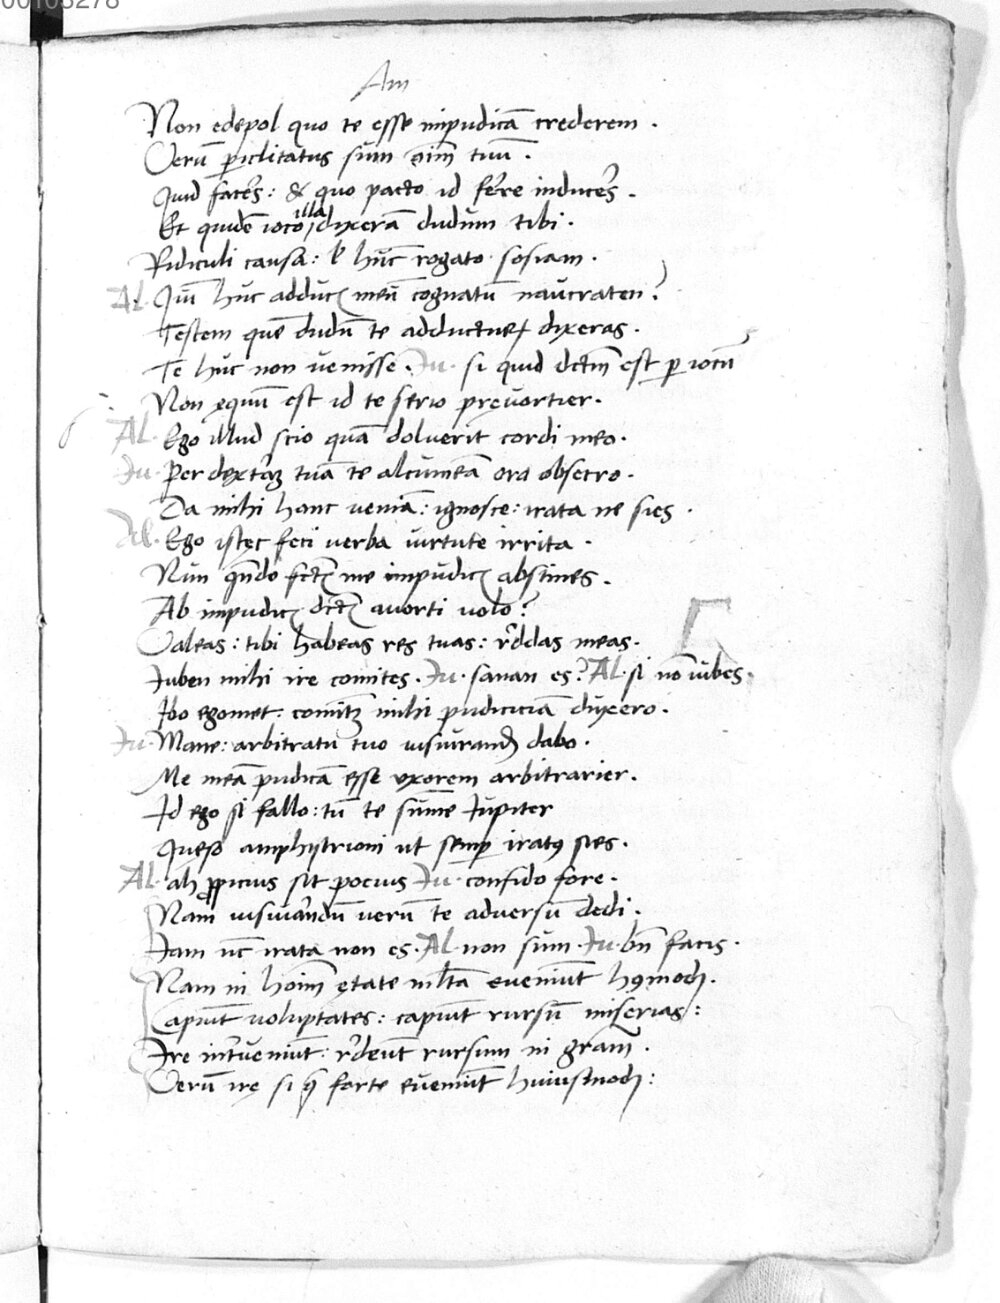 00103278
Am
Non edepol quo te esse impudicã crederem .
Uerũ ꝑiclitatus sũm aĩm tuũ .
Quid facer̃s : & quo pacto id ferre inducer̃s .
Et quidẽ ioco illa dixerã dudum tibi .
Ridiculi causa : ł hũc rogato sosiam .
Al. Qui huc adducꝫ meũ cognatũ naucraten ?
Testem quẽ dudũ te adducturũ dixeras .
Te huc non uenisse . Iu . si quid dctm̃ est ꝑ iocũ
Non ęquũ est id te serio pręuortier .
Al . Ego illud scio quã doluerit cordi meo .
Iu . Per dextr̃aꝫ tuã te alcumeã oro obsecro .
Da mihi hanc ueniã : ignosce : irata ne sies .
Al . Ego istęc feci uerba uirtute irrita .
Nũn qñdo fctꝫ me impudicꝫ abstines .
Ab impudicꝫ dctꝫ auorti uolo ?
Ualeas : tibi habeas res tuas : r̃ddas meas .
Iuben mihi ire comites . Iu . sanan es ? Al . si nõ iubes .
Ibo egomet : comitẽ mihi pudiciciã duxero .
Iu . Mane : arbitratu tuo iusiurandꝫ dabo .
Me meã pudicã esse uxorem arbitrarier .
Id ego si fallo : tũ te sũme Iupiter
Queso amphytrioni ut semꝑ iratꝰ sies .
Al . ah ꝓpicius sit pocius Iu . confido fore .
Nam iusiurãndũ uerũ te aduersũ dedi .
Iam nc̃ irata non es . Al . non sum . Iu . bñ facis .
Nam in hoĩm ętate ml̃ta eueniũt hꝰmodi .
Capiũt uoluptates : capiũt rursũ miserias :
Ire int̃ueniũt : r̃deũt rursum in gr̃am .
Uerũ irę si q̃ forte eueniũt huiusmodi :